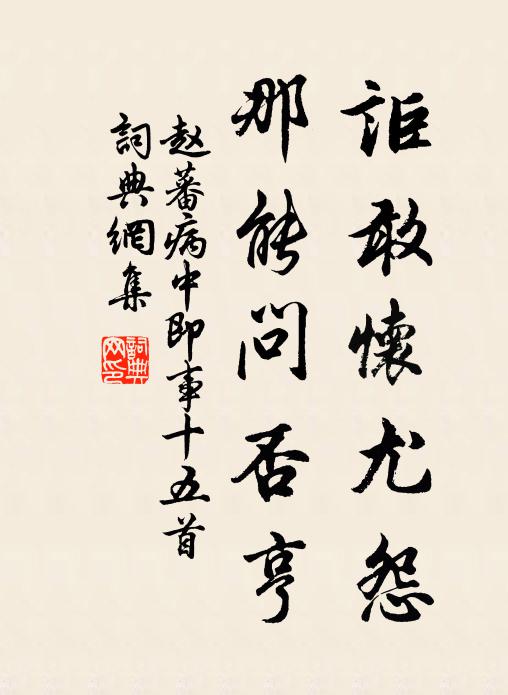 詎敢懷尤怨
那能問否亨
赵蕃病中即事十五首
詞典網集
詞典
网印